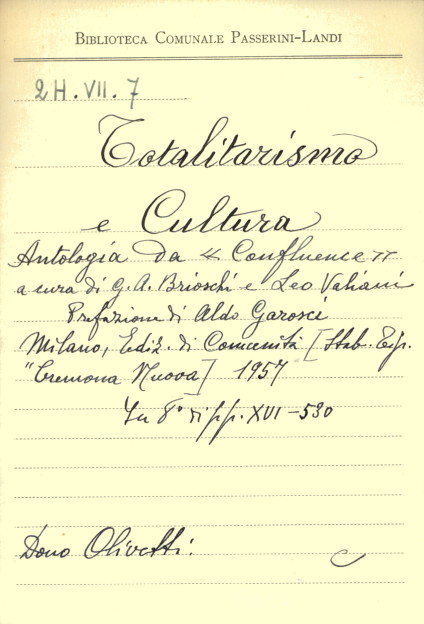 BIBLIOTECA COMUNALE PASSERINI-LANDI
2H.VII.7
Totalitarismo
e Cultura
Antologia da « Confluence »
a cura di G. A. Brioschi e Leo Valiani
Prefazione di Aldo Garosci
Milano, Ediz. di Comunità [Stab. Tip.
"Cremona Nuova] 1957
In 8° di pp. XVI-530
Dono Olivetti.